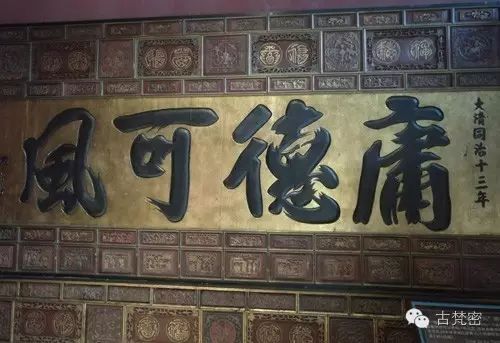 大清同治十三年
庸德可風
古梵密